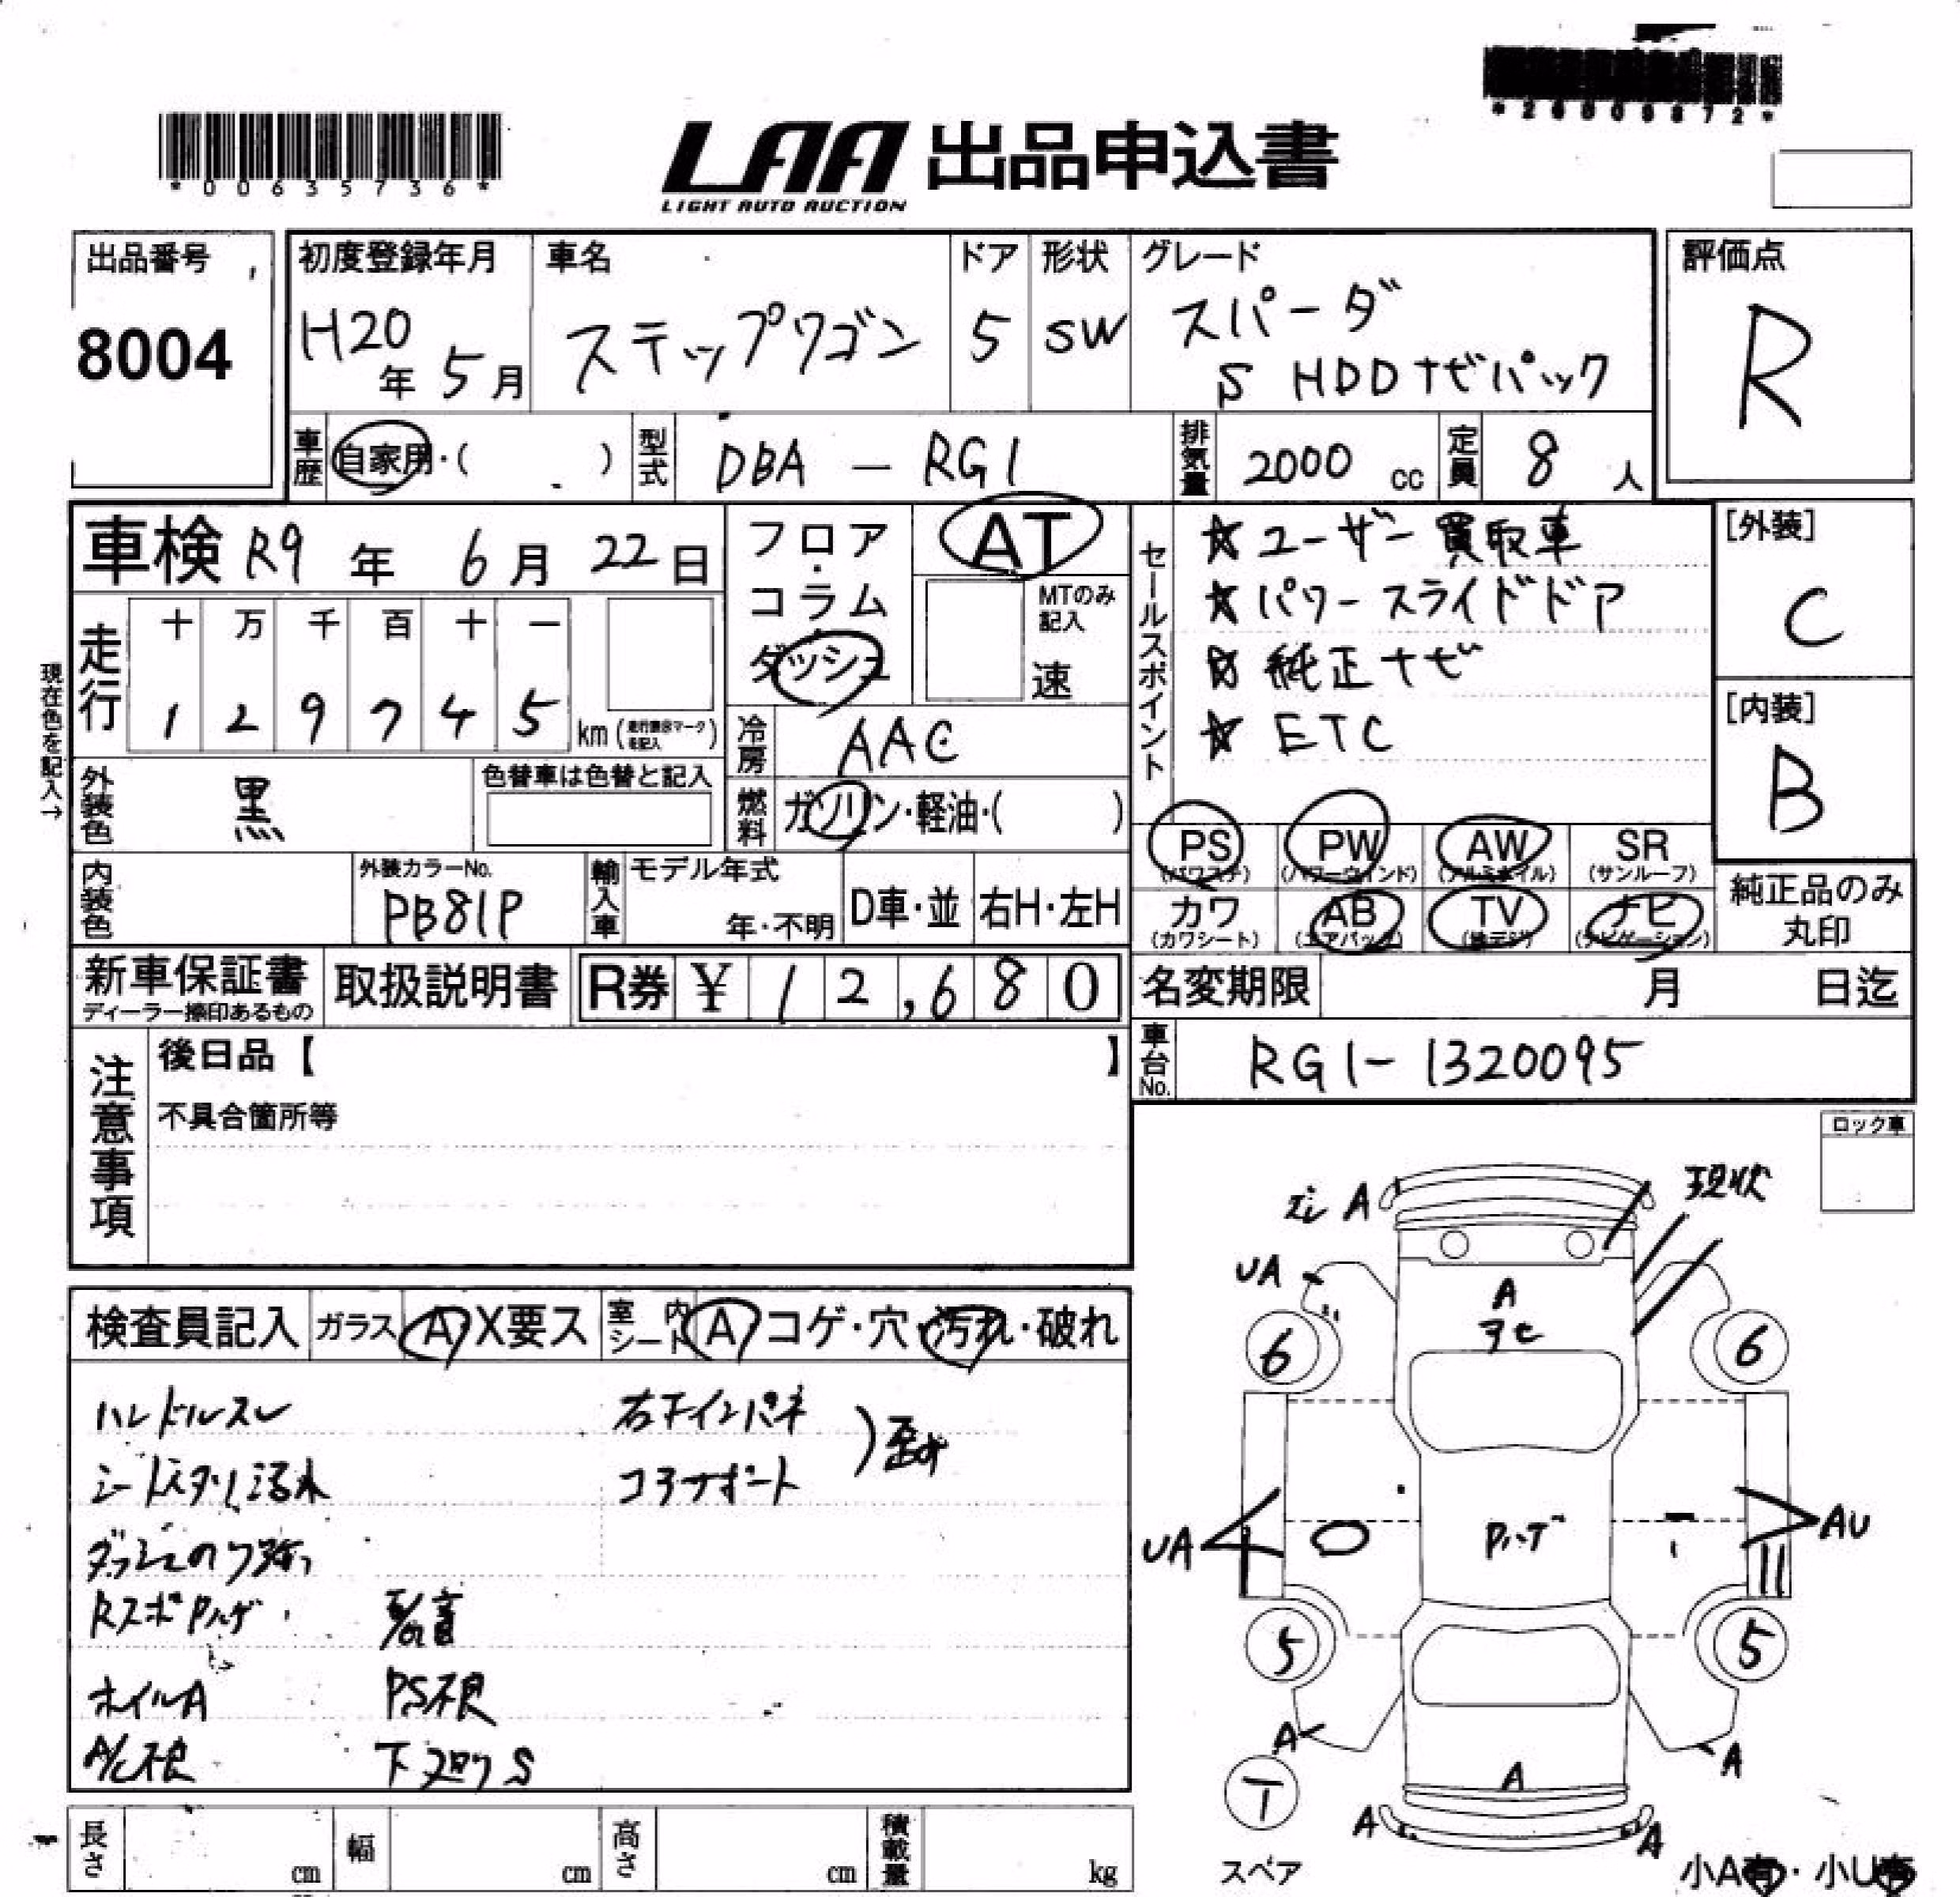 *00635736*
LAA 出品申込書
LIGHT AUTO AUCTION
出品番号
8004
初度登録年月
H20年 5月
車名
ステップワゴン
ドア
5
形状
SW
グレード
スパーダ
S HDDナビパック
評価点
R
車歴 自家用・( )
型式 DBA-RG1
排気量 2000 cc
定員 8 人
車検 R9年 6月 22日
フロア・コラム・ダッシュ
AT
MTのみ記入
速
セールスポイント
★ユーザー買取車
★パワースライドドア
☆純正ナビ
★ETC
[外装]
C
[内装]
B
現在色を記入→
走行
十 万 千 百 十 一
1 2 9 7 4 5 km
冷房 AAC
外装色 黒
色替車は色替と記入
燃料 ガソリン・軽油・( )
PS (パワステ)
PW (パワーウインド)
AW (アルミホイル)
SR (サンルーフ)
カワ (カワシート)
AB (エアバック)
TV (地デジ)
ナビ (ナビゲーション)
純正品のみ丸印
内装色
外装カラーNo.
PB81P
輸入車
モデル年式
年・不明
D車・並
右H・左H
新車保証書
ディーラー捺印あるもの
取扱説明書
R券 ¥ 12,680
名変期限 月 日迄
車台No. RG1-1320095
注意事項
後日品【 】
不具合箇所等
ロック車
検査員記入
ガラス A・X要ス
室内シート A・コゲ・穴・汚れ・破れ
ハンドルスレ
右下インパネ
コアサポート
ホイルA
下廻りS
現状
A
UA
A
6
6
UA
AU
5
5
A
A
A
T
スペア
A
A
小A有・小U有
長さ cm
幅 cm
高さ cm
積載量 kg